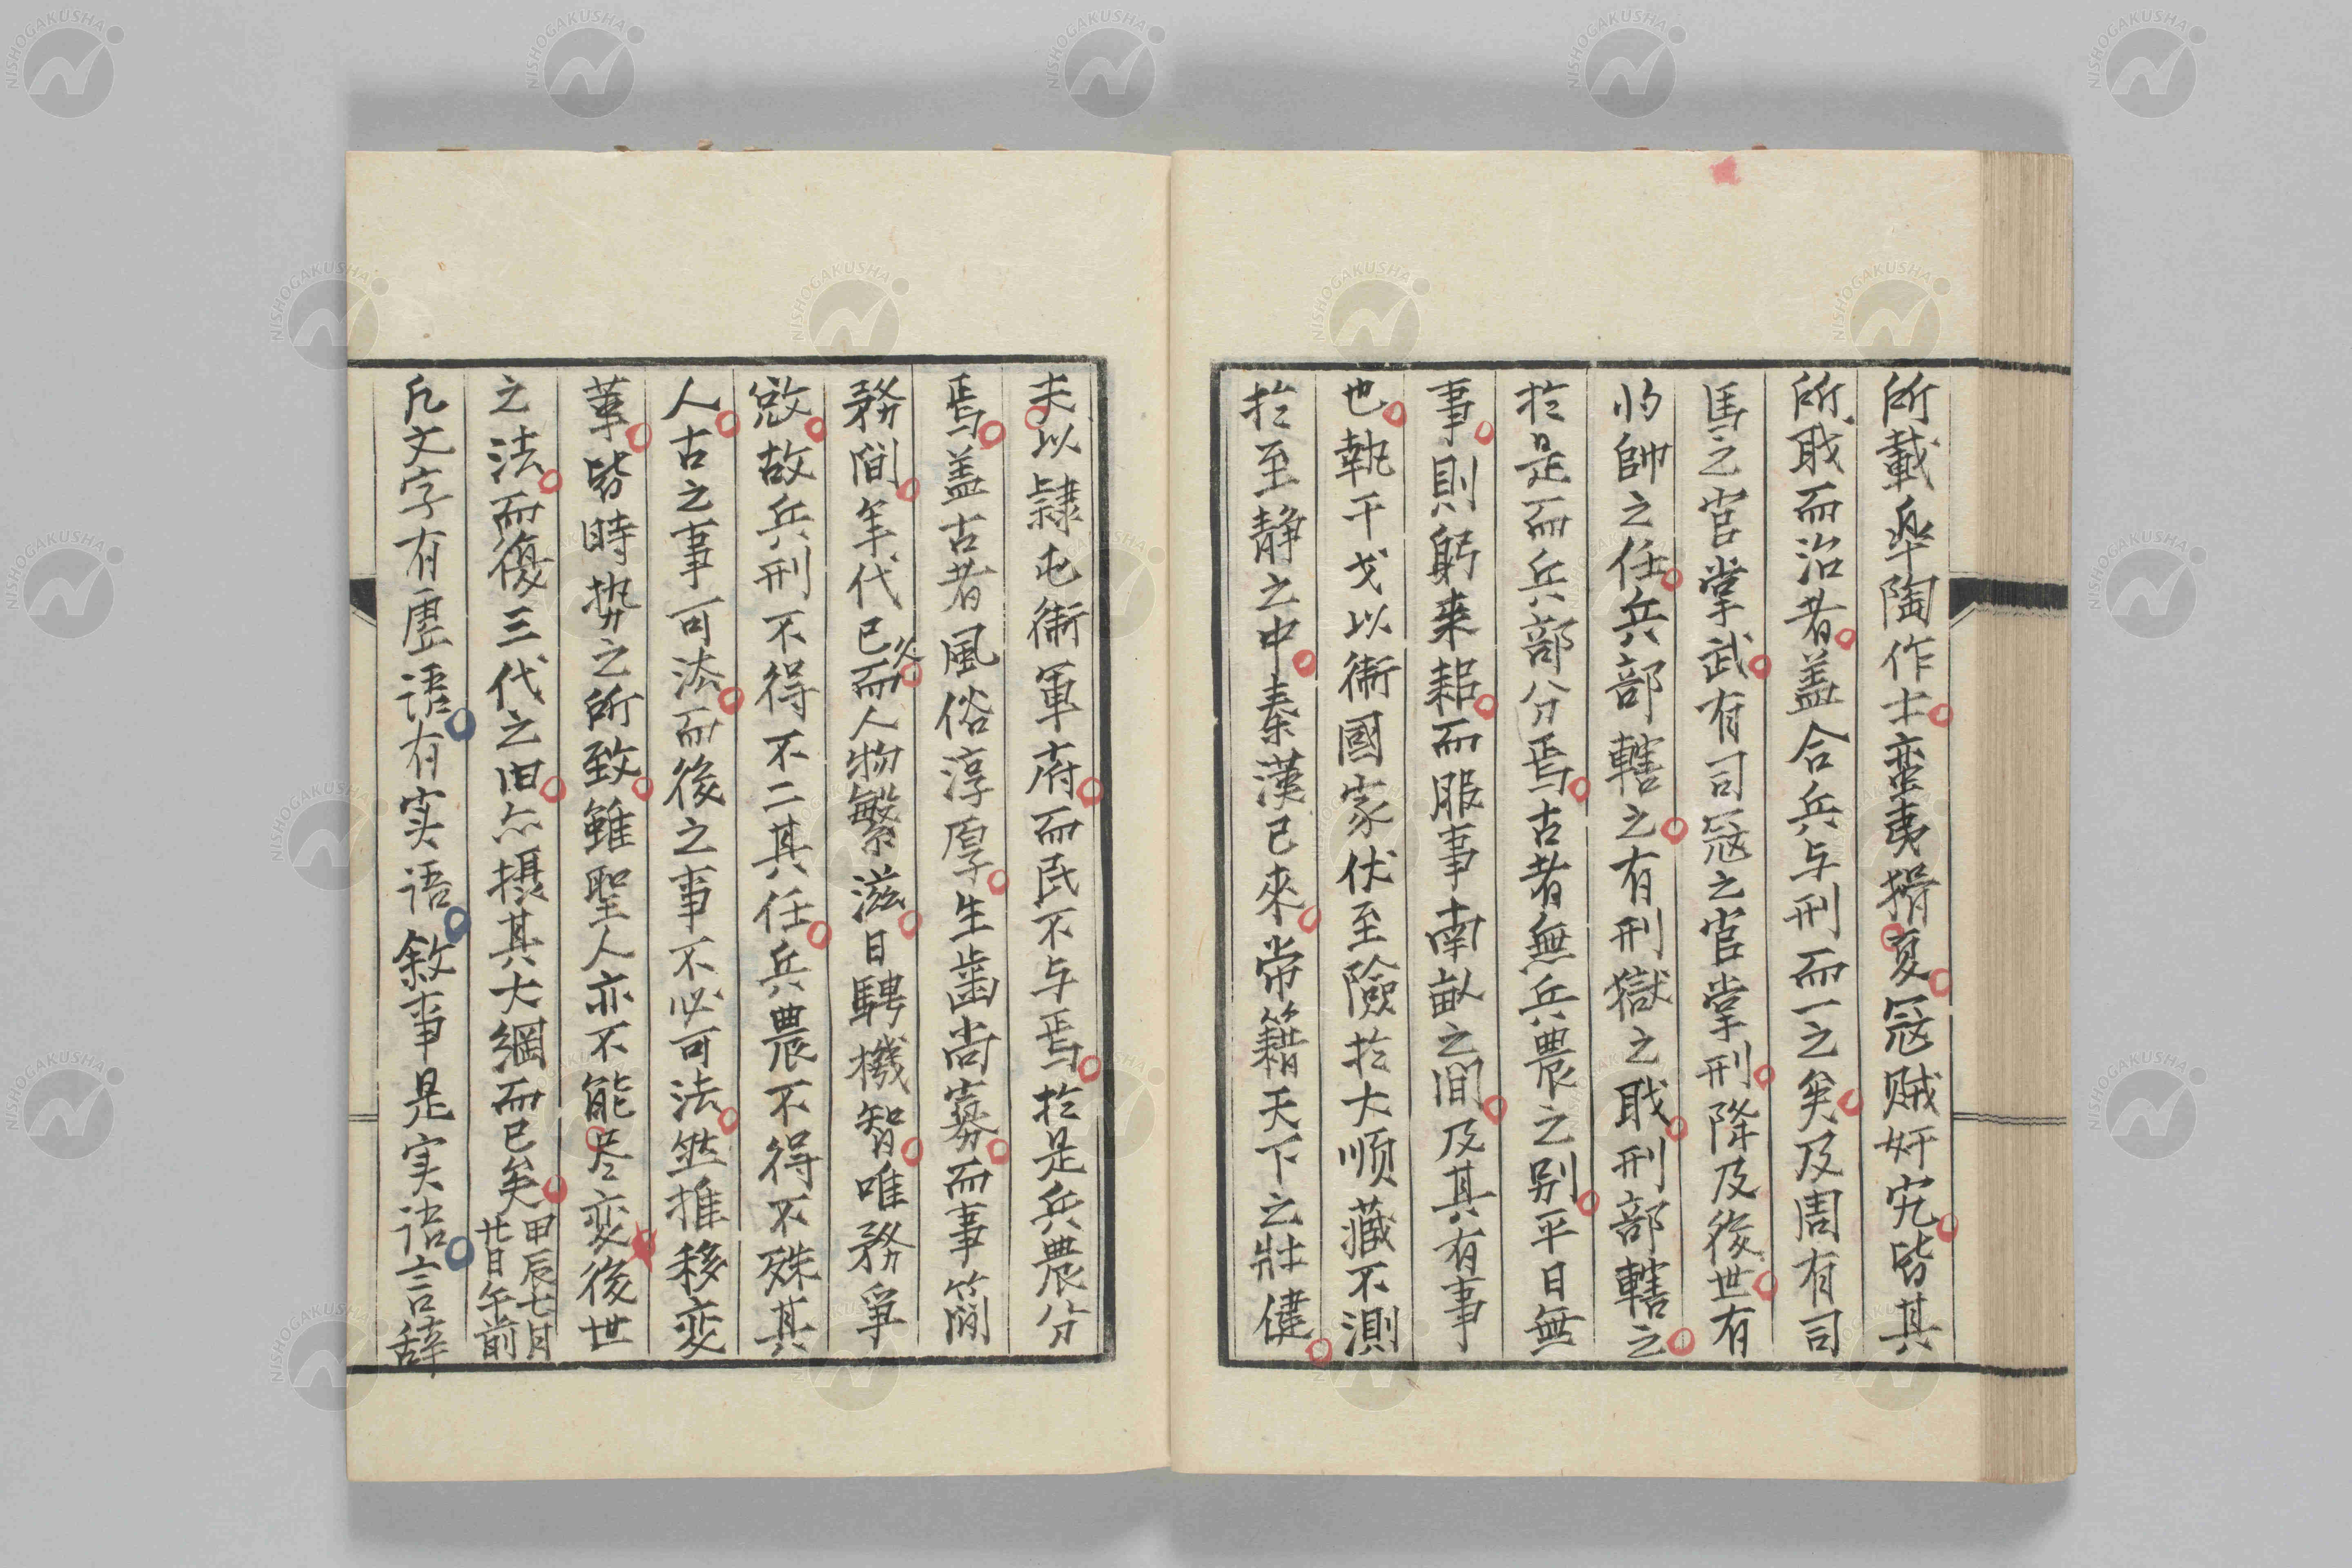 所載皐陶作士蛮夷猾夏冦賊奸宄皆其
所耺而治者盖合兵与刑而一之矣及周有司
馬之官掌武有司冦之官掌刑降及後世有
将帥之任兵部轄之有刑獄之耺刑部轄之
於是而兵部分焉古者無兵農之别平日無
事則躬耒耜而服事南畝之間及其有事
也執干戈以衛國家伏至險於大順藏不測
於至静之中秦漢已來常籍天下之壯健
夫以隷屯衛軍府而民不与焉於是兵農分
焉盖古者風俗淳厚生歯尚寡而事簡
務間年代已久而人物繁滋日騁機智唯務爭
故兵刑不得不二其任兵農不得不殊其
人古之事可法而後之事不必可法盖推移変
革皆時势之所致雖聖人亦不能尽変後世
之法而復三代之旧亦摂其大綱而已矣甲辰七月廿日午前
凡文字有虚語有实語敘事是实語言辞
NISHOGAKUSHA